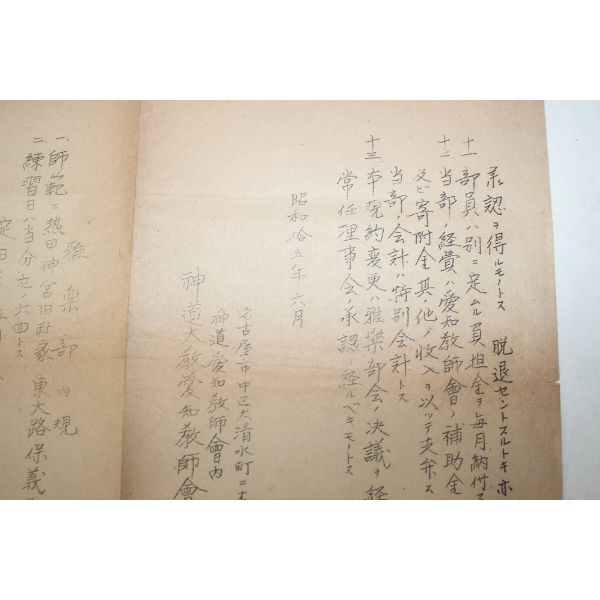 承認ヲ得ルモノトス　脱退セントスルトキ亦
十一 部員ハ別ニ定ムル負担金ヲ毎月納付ス
十二 当部ノ経費ハ愛知教師會ノ補助金
及ビ寄附金其ノ他ノ収入ヲ以ッテ支弁ス
当部ノ会計ハ特別会計トス
十三 本規約変更ハ雅樂部会ノ決議ヲ経
常任理事会ノ承認ヲ経ルベキモノトス
昭和拾五年六月
名古屋市中区大清水町二
神道愛知教師會内
神道大教愛知教師會
雅樂部内規
一、師範ニ熱田神宮旧社家東大路保義
二、練習日ハ当分ノ六四トス
定